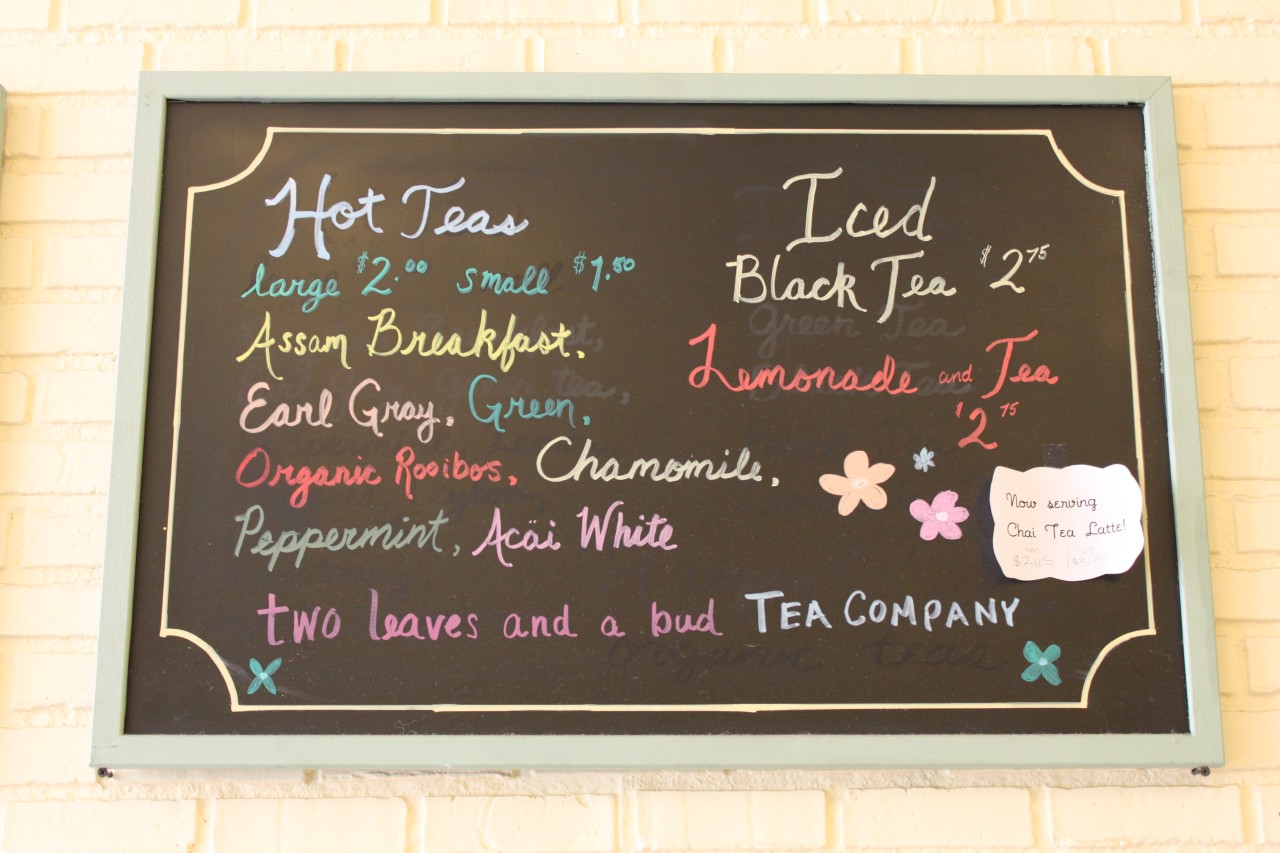 Hot Teas
large $2.00 small $1.50
Assam Breakfast,
Earl Gray, Green,
Organic Rooibos, Chamomile,
Peppermint, Acäi White
Iced
Black Tea $2 75
Green Tea
Lemonade and Tea
$2 75
Now serving
Chai Tea Latte!
two leaves and a bud TEA COMPANY
organic teas